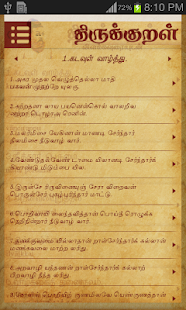 8:10 PM
திருக்குறள்
1.கடவுள் வாழ்த்து
1.அகர முதல வெழுத்தெல்லா மாதி
பகவன் முதற்றே யுலகு.
2.கற்றதனா லாய பயனென்கொல் வாலறிவ
னற்றா டொழாஅ ரெனின்.
3.மலர்மிசை யேகினான் மாணடி சேர்ந்தார்
நிலமிசை நீடுவாழ் வார்.
4.வேண்டுதல்வேண் டாமை யிலானடி சேர்ந்தார்க்
கியாண்டு மிடும்பை யில.
5.இருள்சே ரிருவினையுஞ் சேரா விறைவன்
பொருள்சேர் புகழ்புரிந்தார் மாட்டு.
6.பொறிவாயி லைந்தவித்தான் பொய்தீ ரொழுக்க
நெறிநின்றார் நீடுவாழ் வார்.
7.தனக்குவமை யில்லாதான் றாள்சேர்ந்தார்க் கல்லான்
மனக்கவலை மாற்ற லரிது.
8.அறவாழி யந்தணன் றாள்சேர்ந்தார்க் கல்லாற்
பிறவாழி நீந்த லரிது.
9.கோளில் பொறியிற் குணமிலவே யெண்குணத்தான்